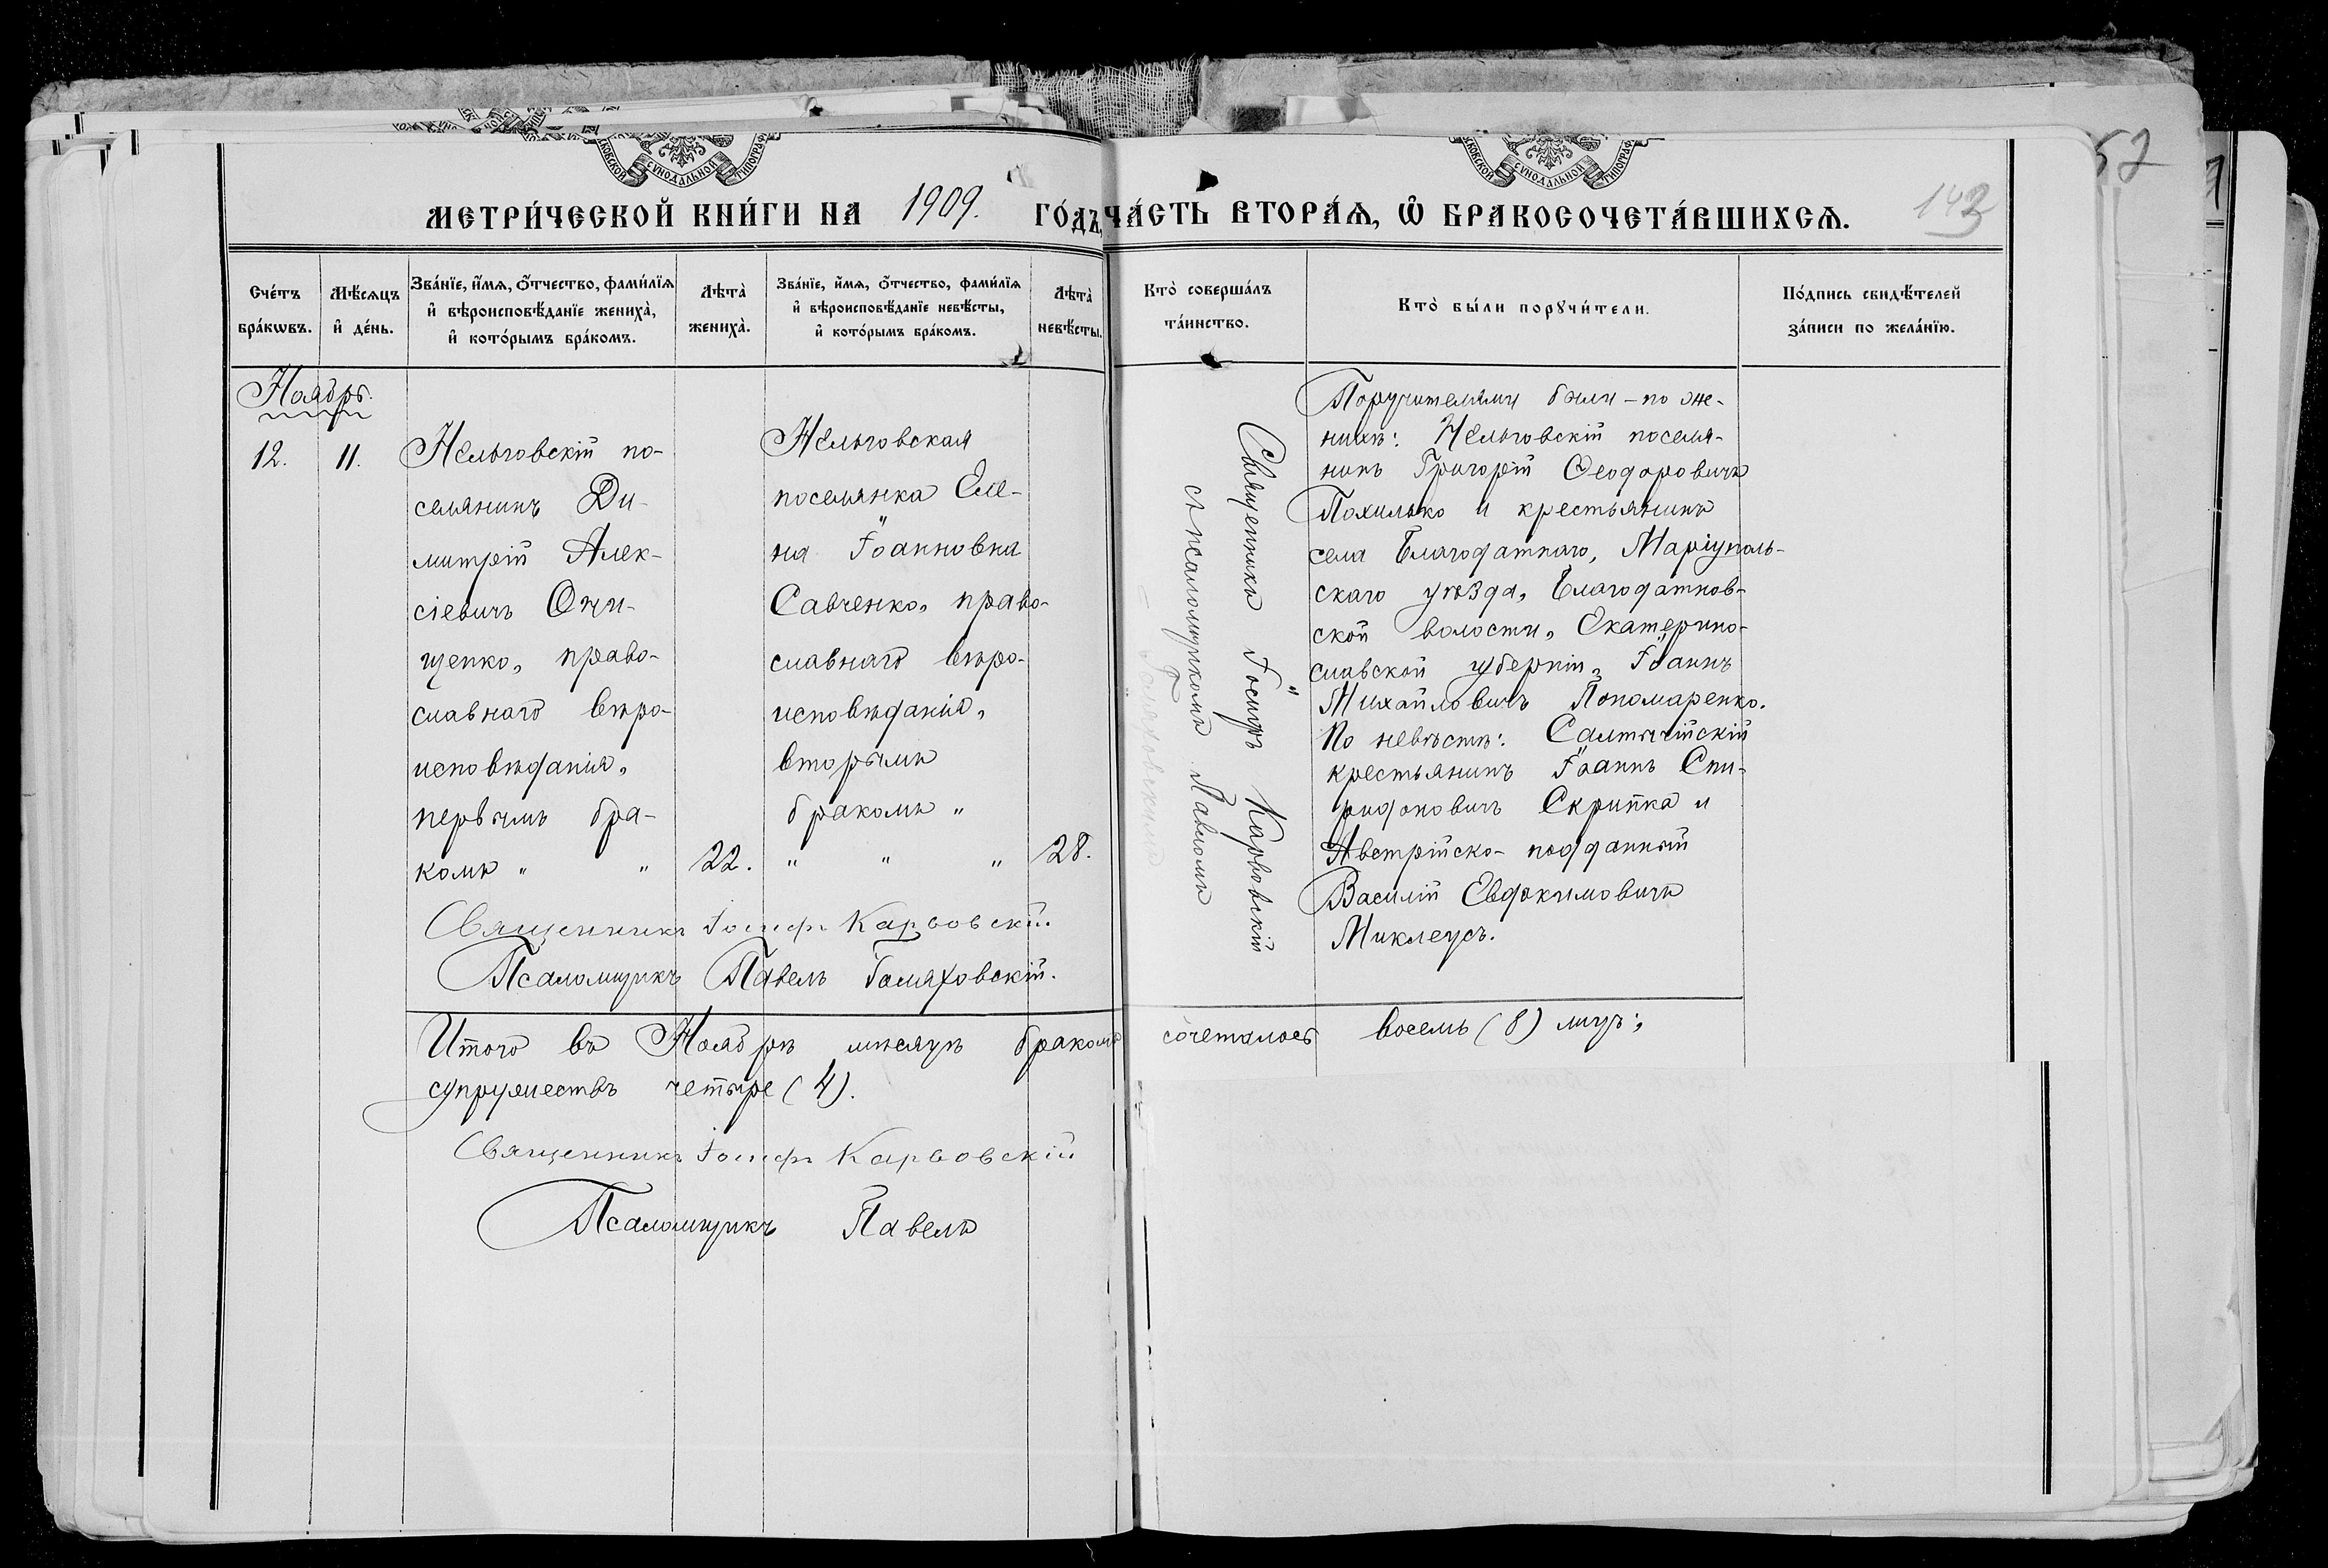 МОСКОВСКОЙ СѴНОДАЛЬНОЙ ТИПОГРАФ
МЕТРИ́ЧЕСКОЙ КНИ́ГИ НА 1909. ГО́ДЪ, ЧА́СТЬ ВТОРА́Ѧ, Ѽ БРАКОСОЧЕТА́ВШИХСѦ.
143
52
Сче́тъ бра́кѡвъ.
Мѣ́сѧцъ и҆ де́нь.
Зва́нїе, и҆́мѧ, ѻ҆́тчество, фами́лїѧ и҆ вѣроисповѣ́данїе жениха̀, и҆ кото́рымъ бра́комъ.
Лѣта̀ жениха̀.
Зва́нїе, и҆́мѧ, ѻ҆́тчество, фами́лїѧ и҆ вѣроисповѣ́данїе невѣ́сты, и҆ кото́рымъ бра́комъ.
Лѣта̀ невѣ́сты.
Кто̀ соверша́лъ та́инство.
Кто̀ бы́ли порꙋчи́тели.
По́дпись свидѣ́телей за́писи по жела́нїю.
Ноябрь.
12.
11.
Нельговскій по-
селянинъ Ди-
митрій Алек-
сіевичъ Они-
щенко, право-
славнаго вѣро-
исповѣданія,
первымъ бра-
комъ " "
22.
Нельговская
поселянка Еле-
на Іоанновна
Савченко, право-
славнаго вѣро-
исповѣданія,
вторымъ
бракомъ "
" " "
28.
Священникъ Іосифъ Карвовскій
съ псаломщикомъ Павломъ
Галяховскимъ
Поручителями были - по же-
нихѣ: Нельговскій поселя-
нинъ Григорій Ѳеодоровичъ
Похилько и крестьянинъ
села Благодатнаго, Маріуполь-
скаго уѣзда, Благодатнов-
ской волости, Екатерино-
славской губерніи, Іоаннъ
Михайловичъ Пономаренко.
По невѣстѣ: Салтычійскій
крестьянинъ Іоаннъ Спи-
ридоновичъ Скрипка и
Австрійско-подданный
Василій Евдокимовичъ
Миклеусъ.
Священникъ Іосифъ Карвовскій
Псаломщикъ Павелъ Галяховскій.
Итого въ Ноябрѣ мѣсяцѣ бракомъ сочеталось восемь (8) лицъ;
супружествъ четыре (4).
Священникъ Іосифъ Карвовскій
Псаломщикъ Павелъ